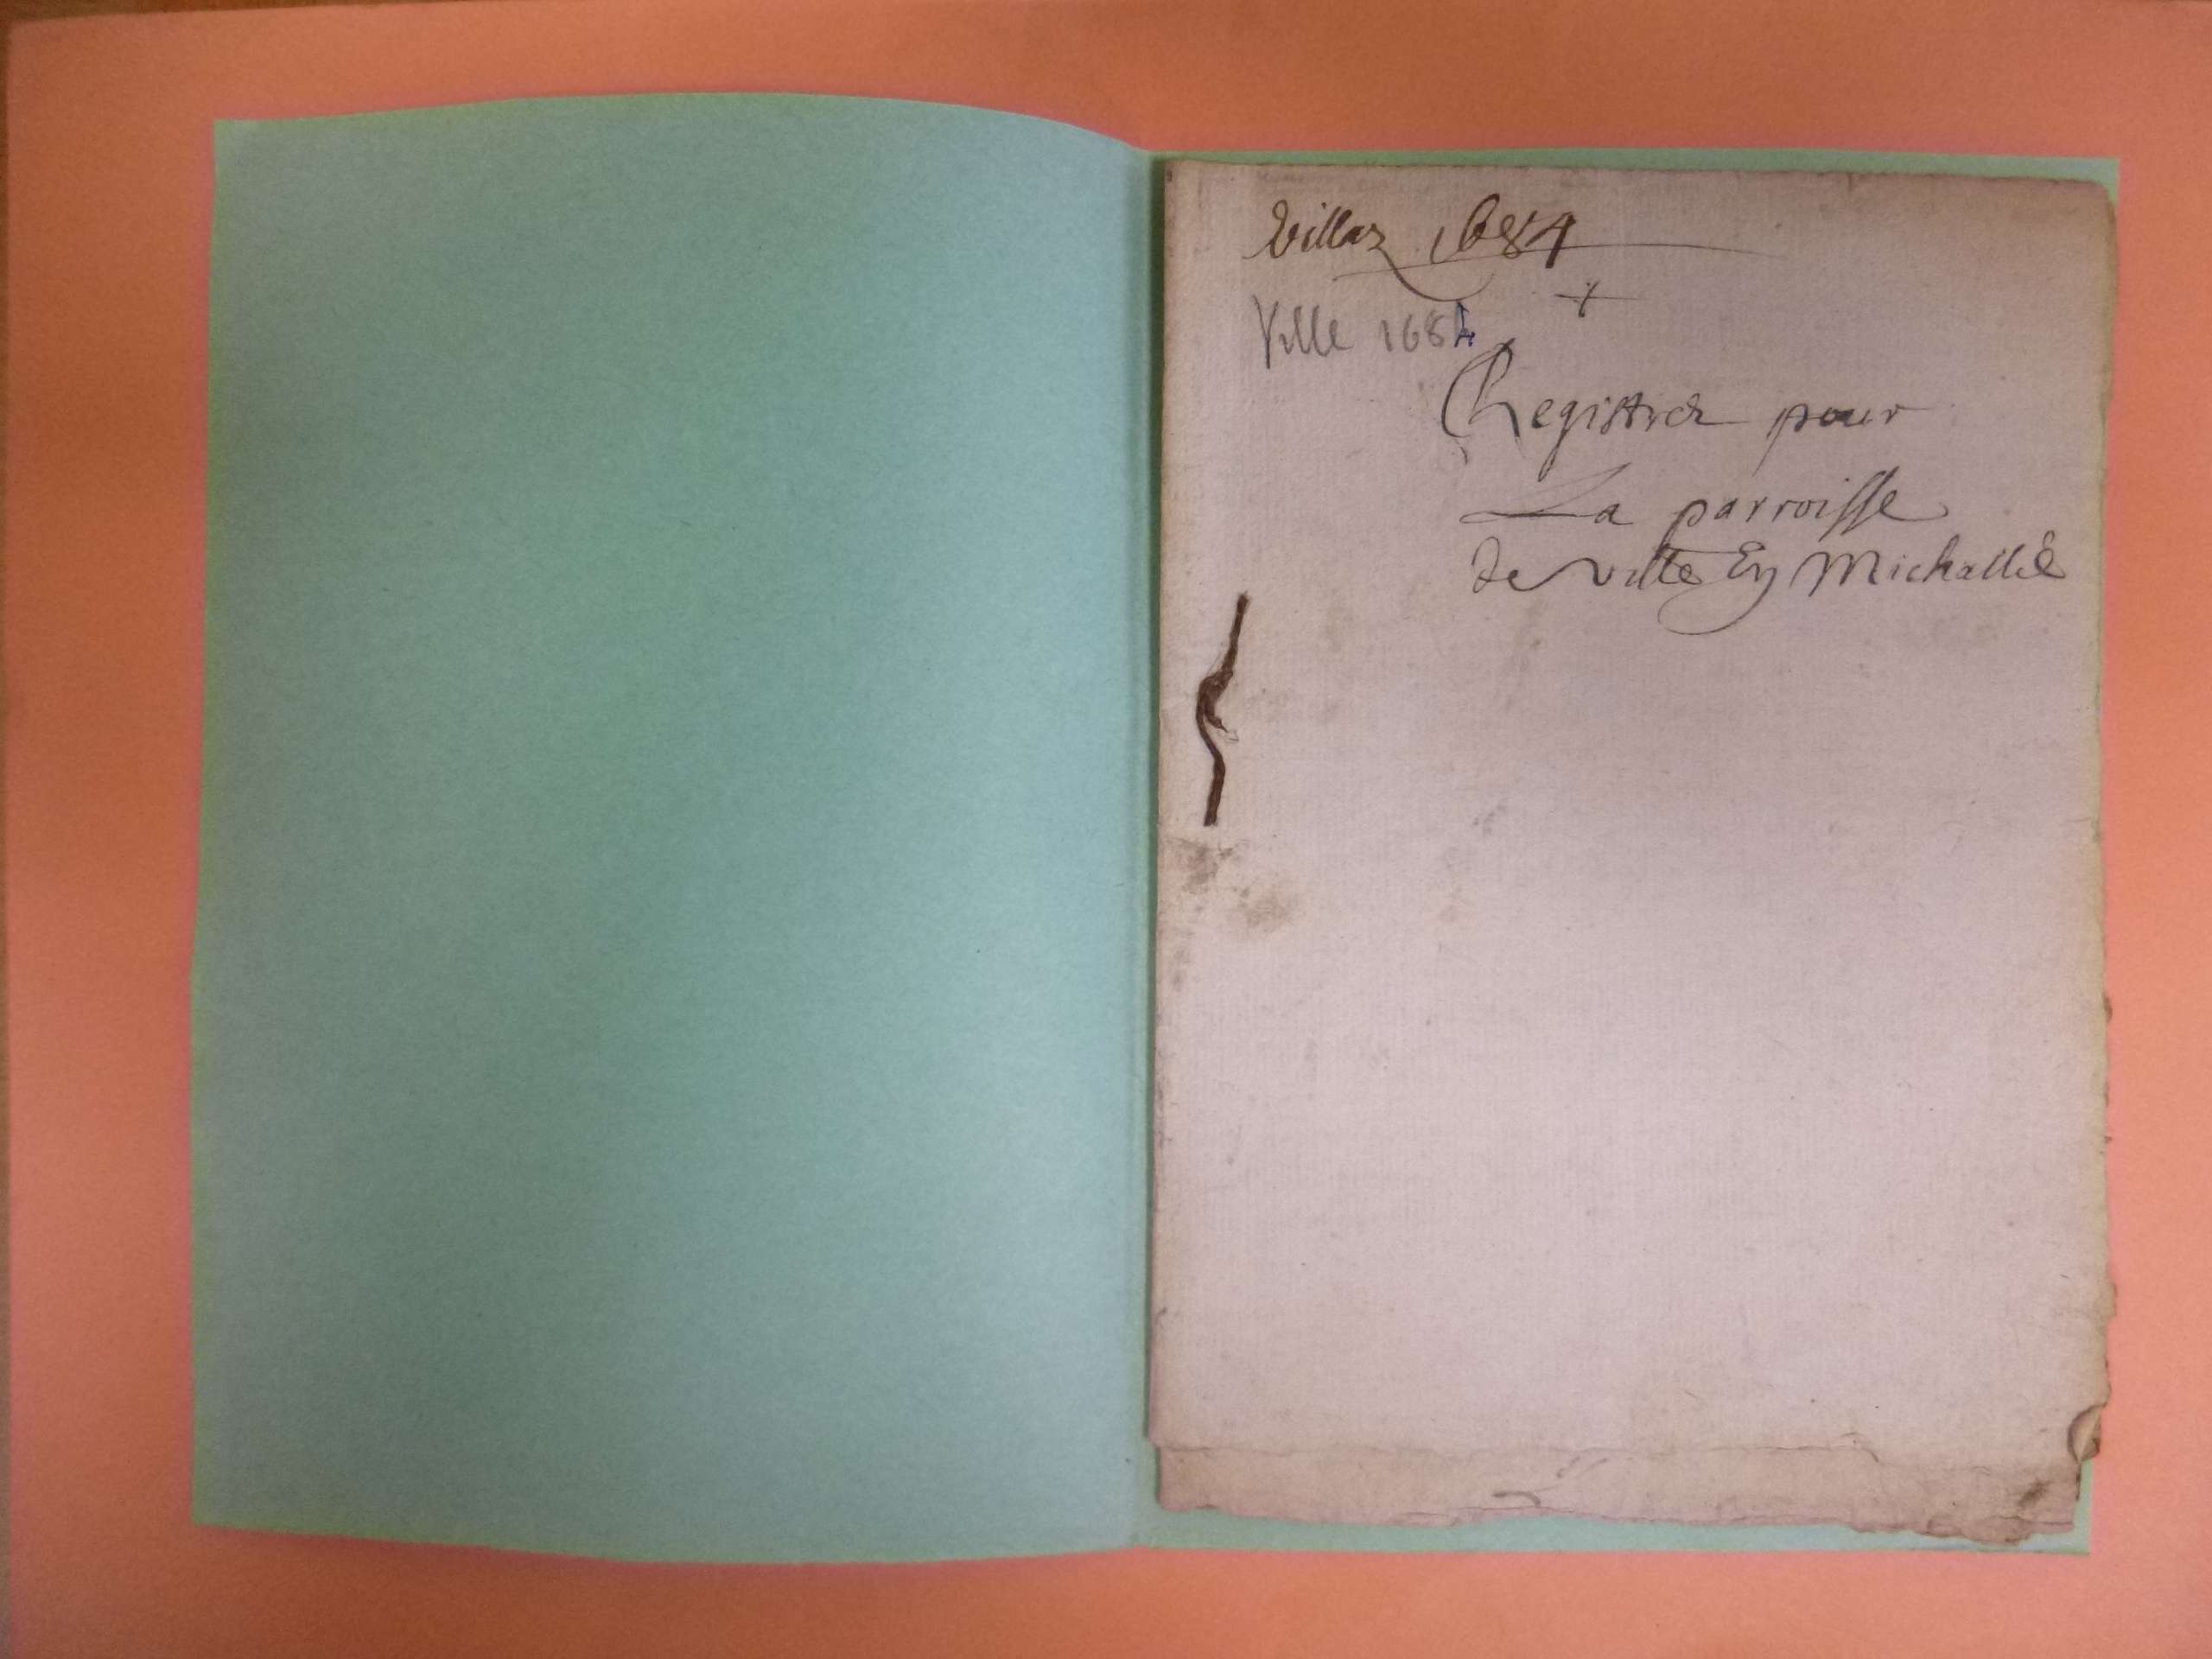 Villaz 1684
+
Ville 1684
Registre pour
La parroisse
de ville En Michallie